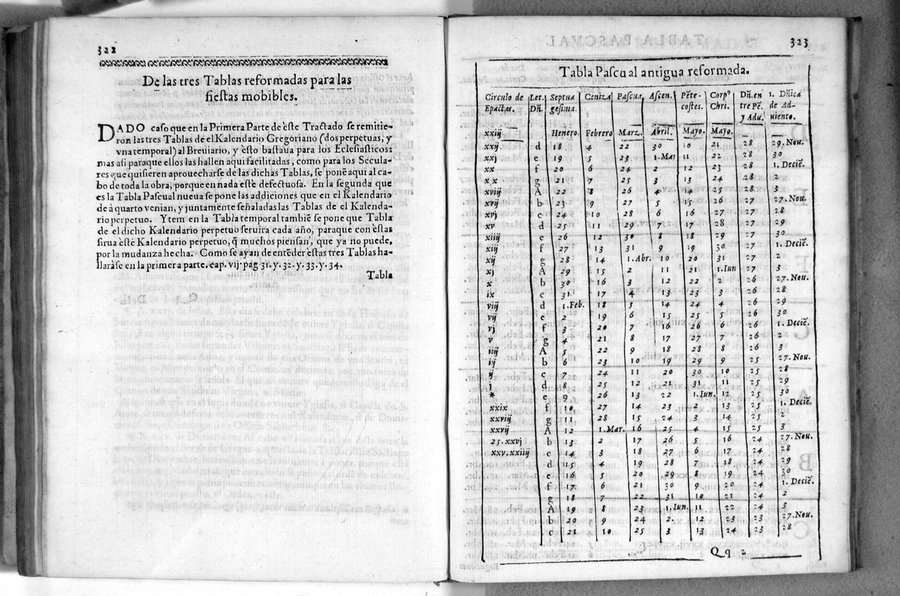 322
De las tres Tablas reformadas para las
fiestas mobibles.
DADO caso que en la Primera Parte de este Tractado se remitie-
ron las tres Tablas de el Kalendario Gregoriano (dos perpetuas, y
vna temporal) al Breuiario, y esto bastaua para los Eclesiasticos
mas asi paraque ellos las hallen aqui facilitadas, como para los Secula-
res que quisieren aprouecharse de las dichas Tablas, se ponē aqui al ca-
bo de toda la obra, porque en nada este defectuosa. En la segunda que
es la Tabla Pascual nueua se pone las addiciones que en el Kalendario
de à quarto venian, y juntamente señaladas las Tablas de el Kalenda-
rio perpetuo. Y tem en la Tabla temporal tambiē se pone que Tabla
de el dicho Kalendario perpetuo seruira cada año, paraque con estas
sirua este Kalendario perpetuo, q̃ muchos piensan, que ya no puede,
por la mudanza hecha. Como se ayan de entēder estas tres Tablas ha-
llarase en la primera parte. cap. vij. pag 31. y. 32. y. 33. y. 34.
Tabla
323
Tabla Pascual antigua reformada.
Circulo de Let. Septua Ceniza Pascua. Ascen. Pēte- Corpᵒ Dñ. en 1. Dñica
Epactas. Dñ. gesima. costes. Chri. tre Pē. de Ad-
y Adu. uiento.
xxiij Henero. Febrero Marz. Abril. Mayo. Mayo.
xxij d 18 4 22 30 10 21 28 29. Nou.
xxj e 19 5 23 1. Mai 11 22 28 30
xx f 20 6 24 2 12 23 28 1. Deciē.
x x g 21 7 25 3 13 24 28 2
xviij A 22 8 26 4 14 25 28 3
xvij b 23 9 27 5 15 26 27 27. Nou.
xvj c 24 10 28 6 16 27 27 28
xv d 25 11 29 7 17 28 27 29
xiiij e 26 12 30 8 18 29 27 30
xiij f 27 13 31 9 19 30 27 1. Deciē.
xij g 28 14 1. Abr. 10 20 31 27 2
xj A 29 15 2 11 21 1. Iun 27 3
x b 30 16 3 12 22 2 26 27. Nou.
ix c 31 17 4 13 23 3 26 28
viij d 1. Feb. 18 5 14 24 4 26 29
vij e 2 19 6 15 25 5 26 30
vj f 3 20 7 16 26 6 26 1. Deciē.
v g 4 21 8 17 27 7 26 2
iiij A 5 22 9 18 28 8 26 3
iij b 6 23 10 19 29 9 25 27. Nou.
ij c 7 24 11 20 30 10 25 28
j d 8 25 12 21 31 11 25 29
* e 9 26 13 22 1. Iun. 12 25 30
xxix f 10 27 14 23 2 13 25 1. Deciē.
xxviij g 11 28 15 24 3 14 25 2
xxvij A 12 1. Mar. 16 25 4 15 25 3
25. xxvj b 13 2 17 26 5 16 24 27. Nou.
xxv. xxiiij c 14 3 18 27 6 17 24 28
d 15 4 19 28 7 18 24 29
e 16 5 20 29 8 19 24 30
f 17 6 21 30 9 20 24 1. Deciē.
g 18 7 22 31 10 21 24 2
A 19 8 23 1. Iun. 11 22 24 3
b 20 9 24 2 12 23 23 27. Nou.
c 21 10 25 3 13 24 23 28
Qq 2